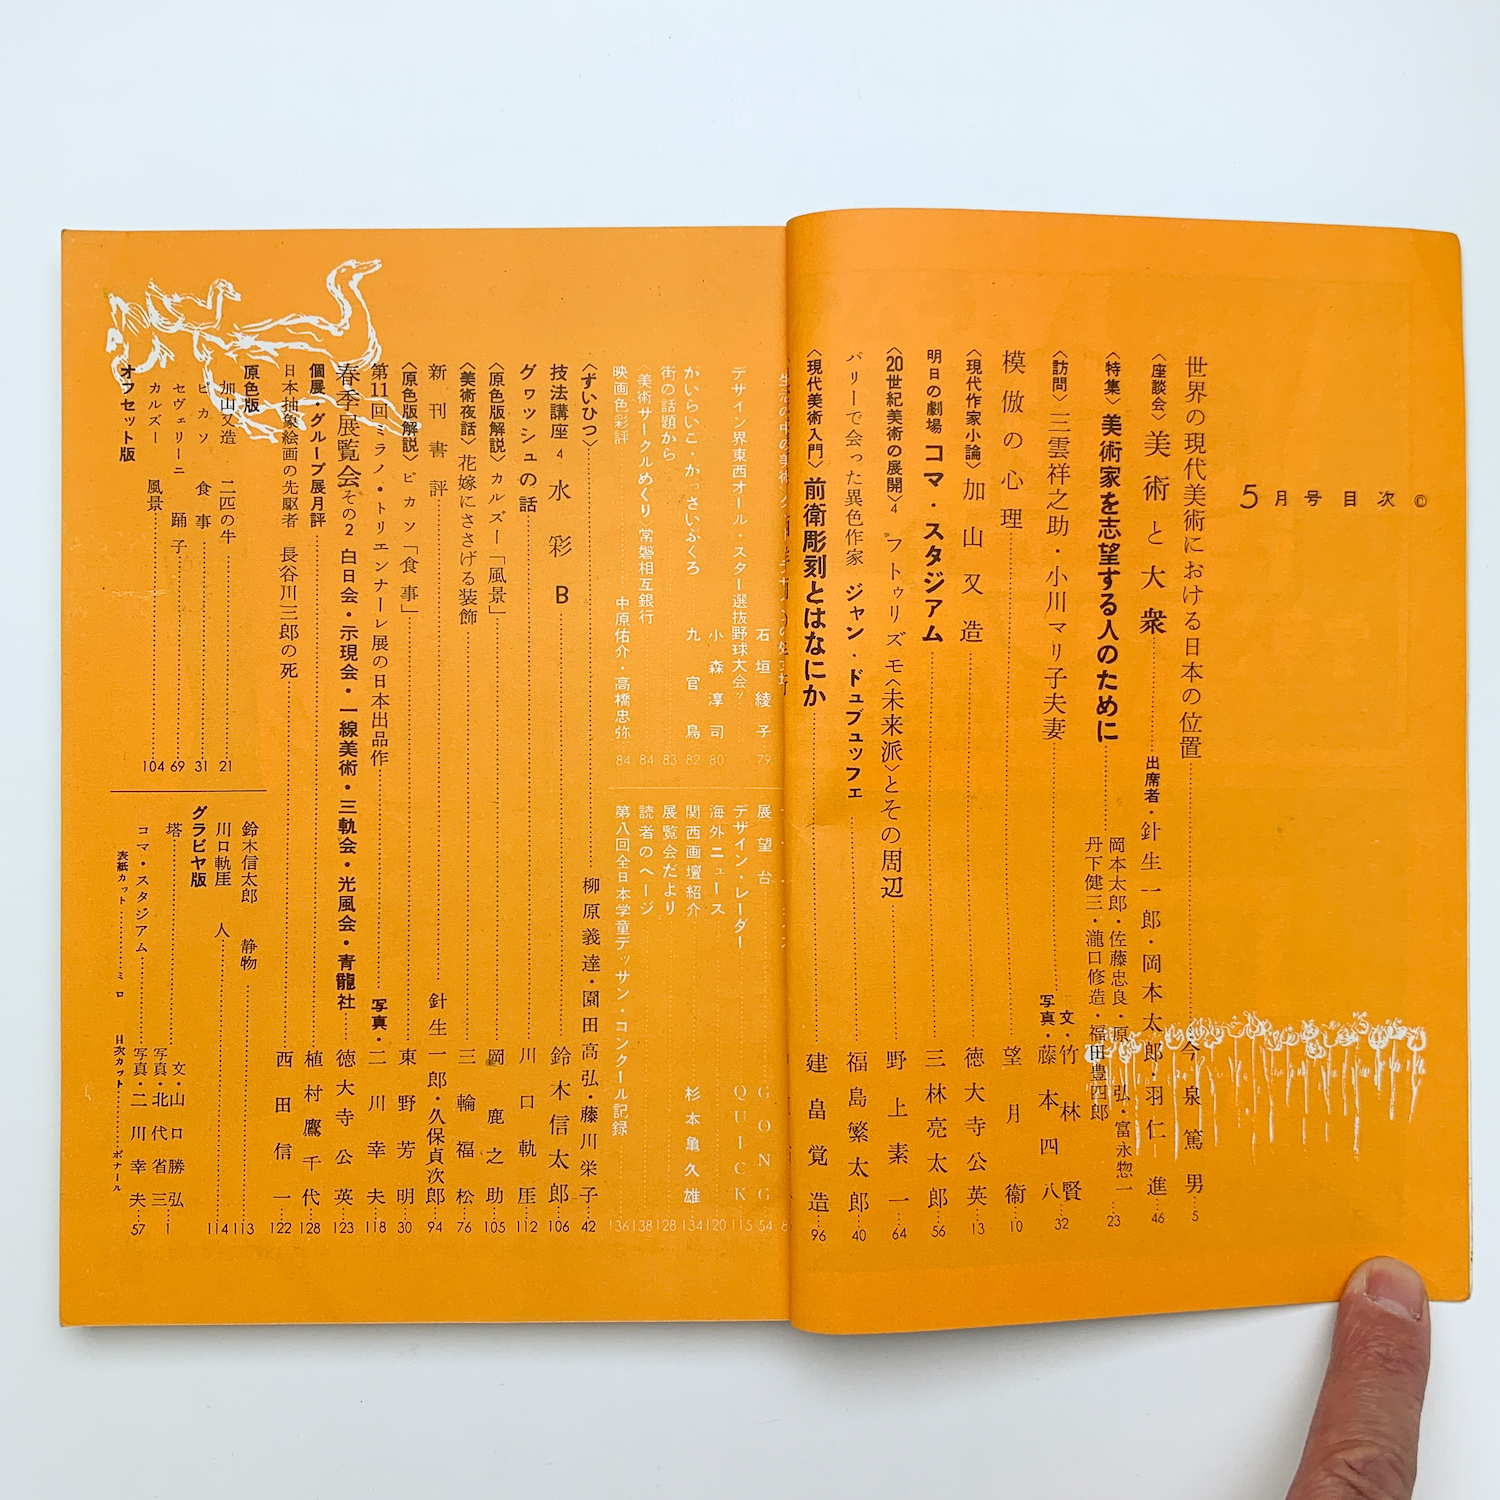 5月号目次 ©
世界の現代美術における日本の位置……今泉篤男…5
〈座談会〉美術と大衆……出席者・針生一郎・岡本太郎・羽仁進…46
〈特集〉美術家を志望する人のために……岡本太郎・佐藤忠良・原弘・富永惣一
丹下健三・瀧口修造・福田豊四郎…23
〈訪問〉三雲祥之助・小川マリ子夫妻……文・竹林賢
写真・藤本四八…32
模倣の心理……望月衞…10
〈現代作家小論〉加山又造……徳大寺公英…13
明日の劇場 コマ・スタジアム……三林亮太郎…56
〈20世紀美術の展開〉4 フトゥリズモ〈未来派〉とその周辺……野上素一…64
パリーで会った異色作家 ジャン・ドュブュッフェ……福島繁太郎…40
〈現代美術入門〉前衛彫刻とはなにか……建畠覚造…96
デザイン界東西オール・スター選抜野球大会!!
石垣綾子…79
小森淳司…80
がいらいこ・かっさいぶくろ 九官鳥…82
街の話題から…83
〈美術サークルめぐり〉常磐相互銀行…84
映画色彩評 中原佑介・高橋忠弥…84
展望台……GONG…54
デザイン・レーダー……QUICK…115
海外ニュース…120
関西画壇紹介……杉本亀久雄…134
展覧会だより…128
読者のページ…138
第八回全日本学童デッサン・コンクール記録…136
〈ずいひつ〉……柳原義達・園田高弘・藤川栄子…42
技法講座 4 水彩B……鈴木信太郎…106
グヮッシュの話……川口軌厓…112
〈原色版解説〉カルズー「風景」……岡鹿之助…105
〈美術夜話〉花嫁にささげる装飾……三輪福松…76
新刊書評……針生一郎・久保貞次郎…94
〈原色版解説〉ピカソ「食事」……東野芳明…30
第11回ミラノ・トリエンナーレ展の日本出品作……写真・二川幸夫…118
春季展覧会その2 白日会・示現会・一線美術・三軌会・光風会・青龍社…徳大寺公英…123
個展・グループ展月評……植村鷹千代…128
日本抽象絵画の先駆者 長谷川三郎の死……西田信一…122
原色版
加山又造 二匹の牛……21
ピカソ 食事……31
セヴェリーニ 踊子……69
カルズー 風景……104
オフセット版
鈴木信太郎 静物……113
川口軌厓 人……114
グラビヤ版
塔……文・山口勝弘
写真・北代省三…1
コマ・スタジアム……写真・二川幸夫…57
表紙カット……ミロ 目次カット……ボナール